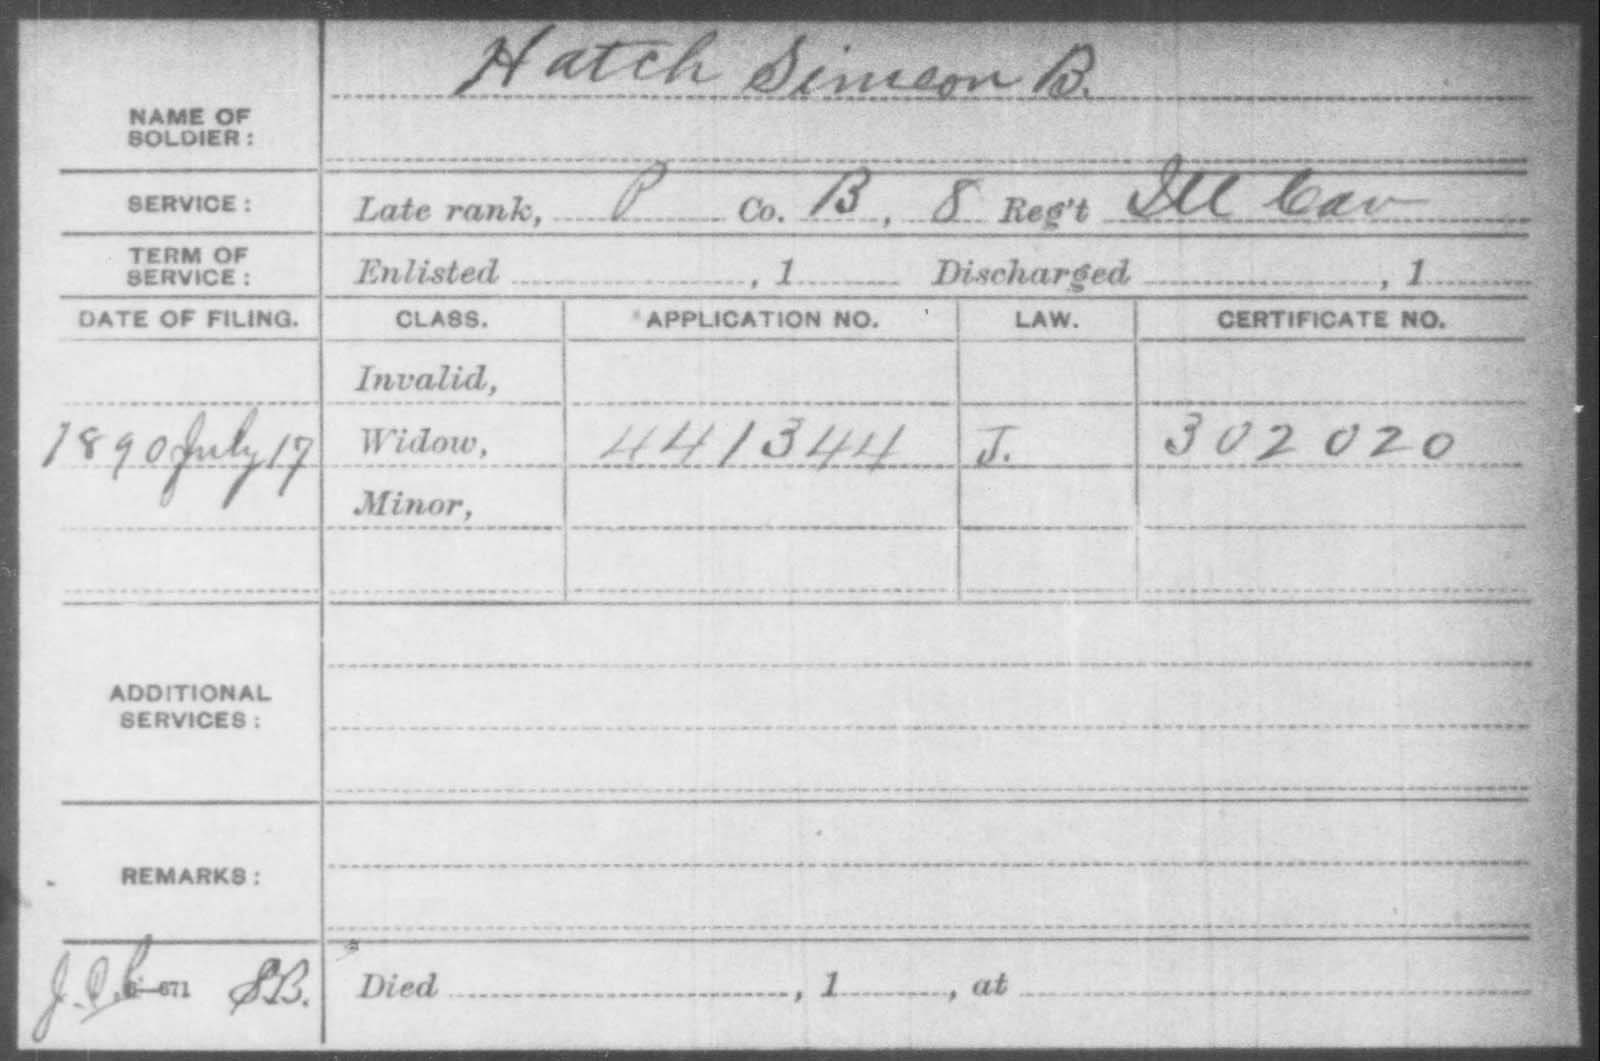 Hatch Simeon B.
NAME OF
SOLDIER:
SERVICE: Late rank, P Co. B, 8 Reg't Ill Cav
TERM OF
SERVICE: Enlisted , 1 Discharged , 1
DATE OF FILING. CLASS. APPLICATION NO. LAW. CERTIFICATE NO.
Invalid,
1890 July 17 Widow, 441344 J. 302020
Minor,
ADDITIONAL
SERVICES:
REMARKS:
S.B. Died , 1 , at